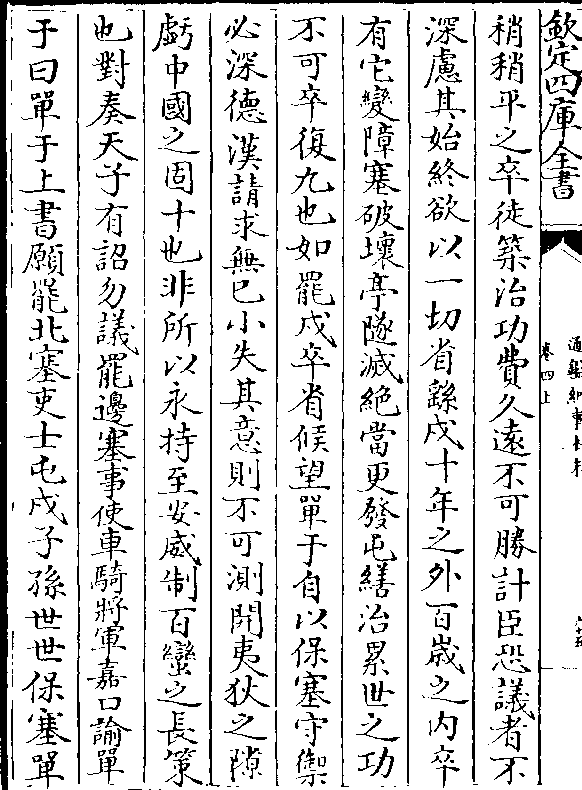 欽定四庫全書
稍稍平之卒徒築治功費久遠不可勝計臣恐議者不
深慮其始終欲以一切省繇戍十年之外百歲之内卒
有它變障塞破壞亭隧滅絶當更發屯繕治累世之功
不可卒復九也如罷戍卒省候望單于自以保塞守禦
必深德漢請求無已小失其意則不可測開夷狄之隙
虧中國之固十也非所以永持至安威制百蠻之長策
也對奏天子有詔勿議罷邊塞事使車騎將軍嘉口諭單
于曰單于上書願罷北塞吏士屯戍子孫世世保塞單
通鑑紀事本末
卷四上